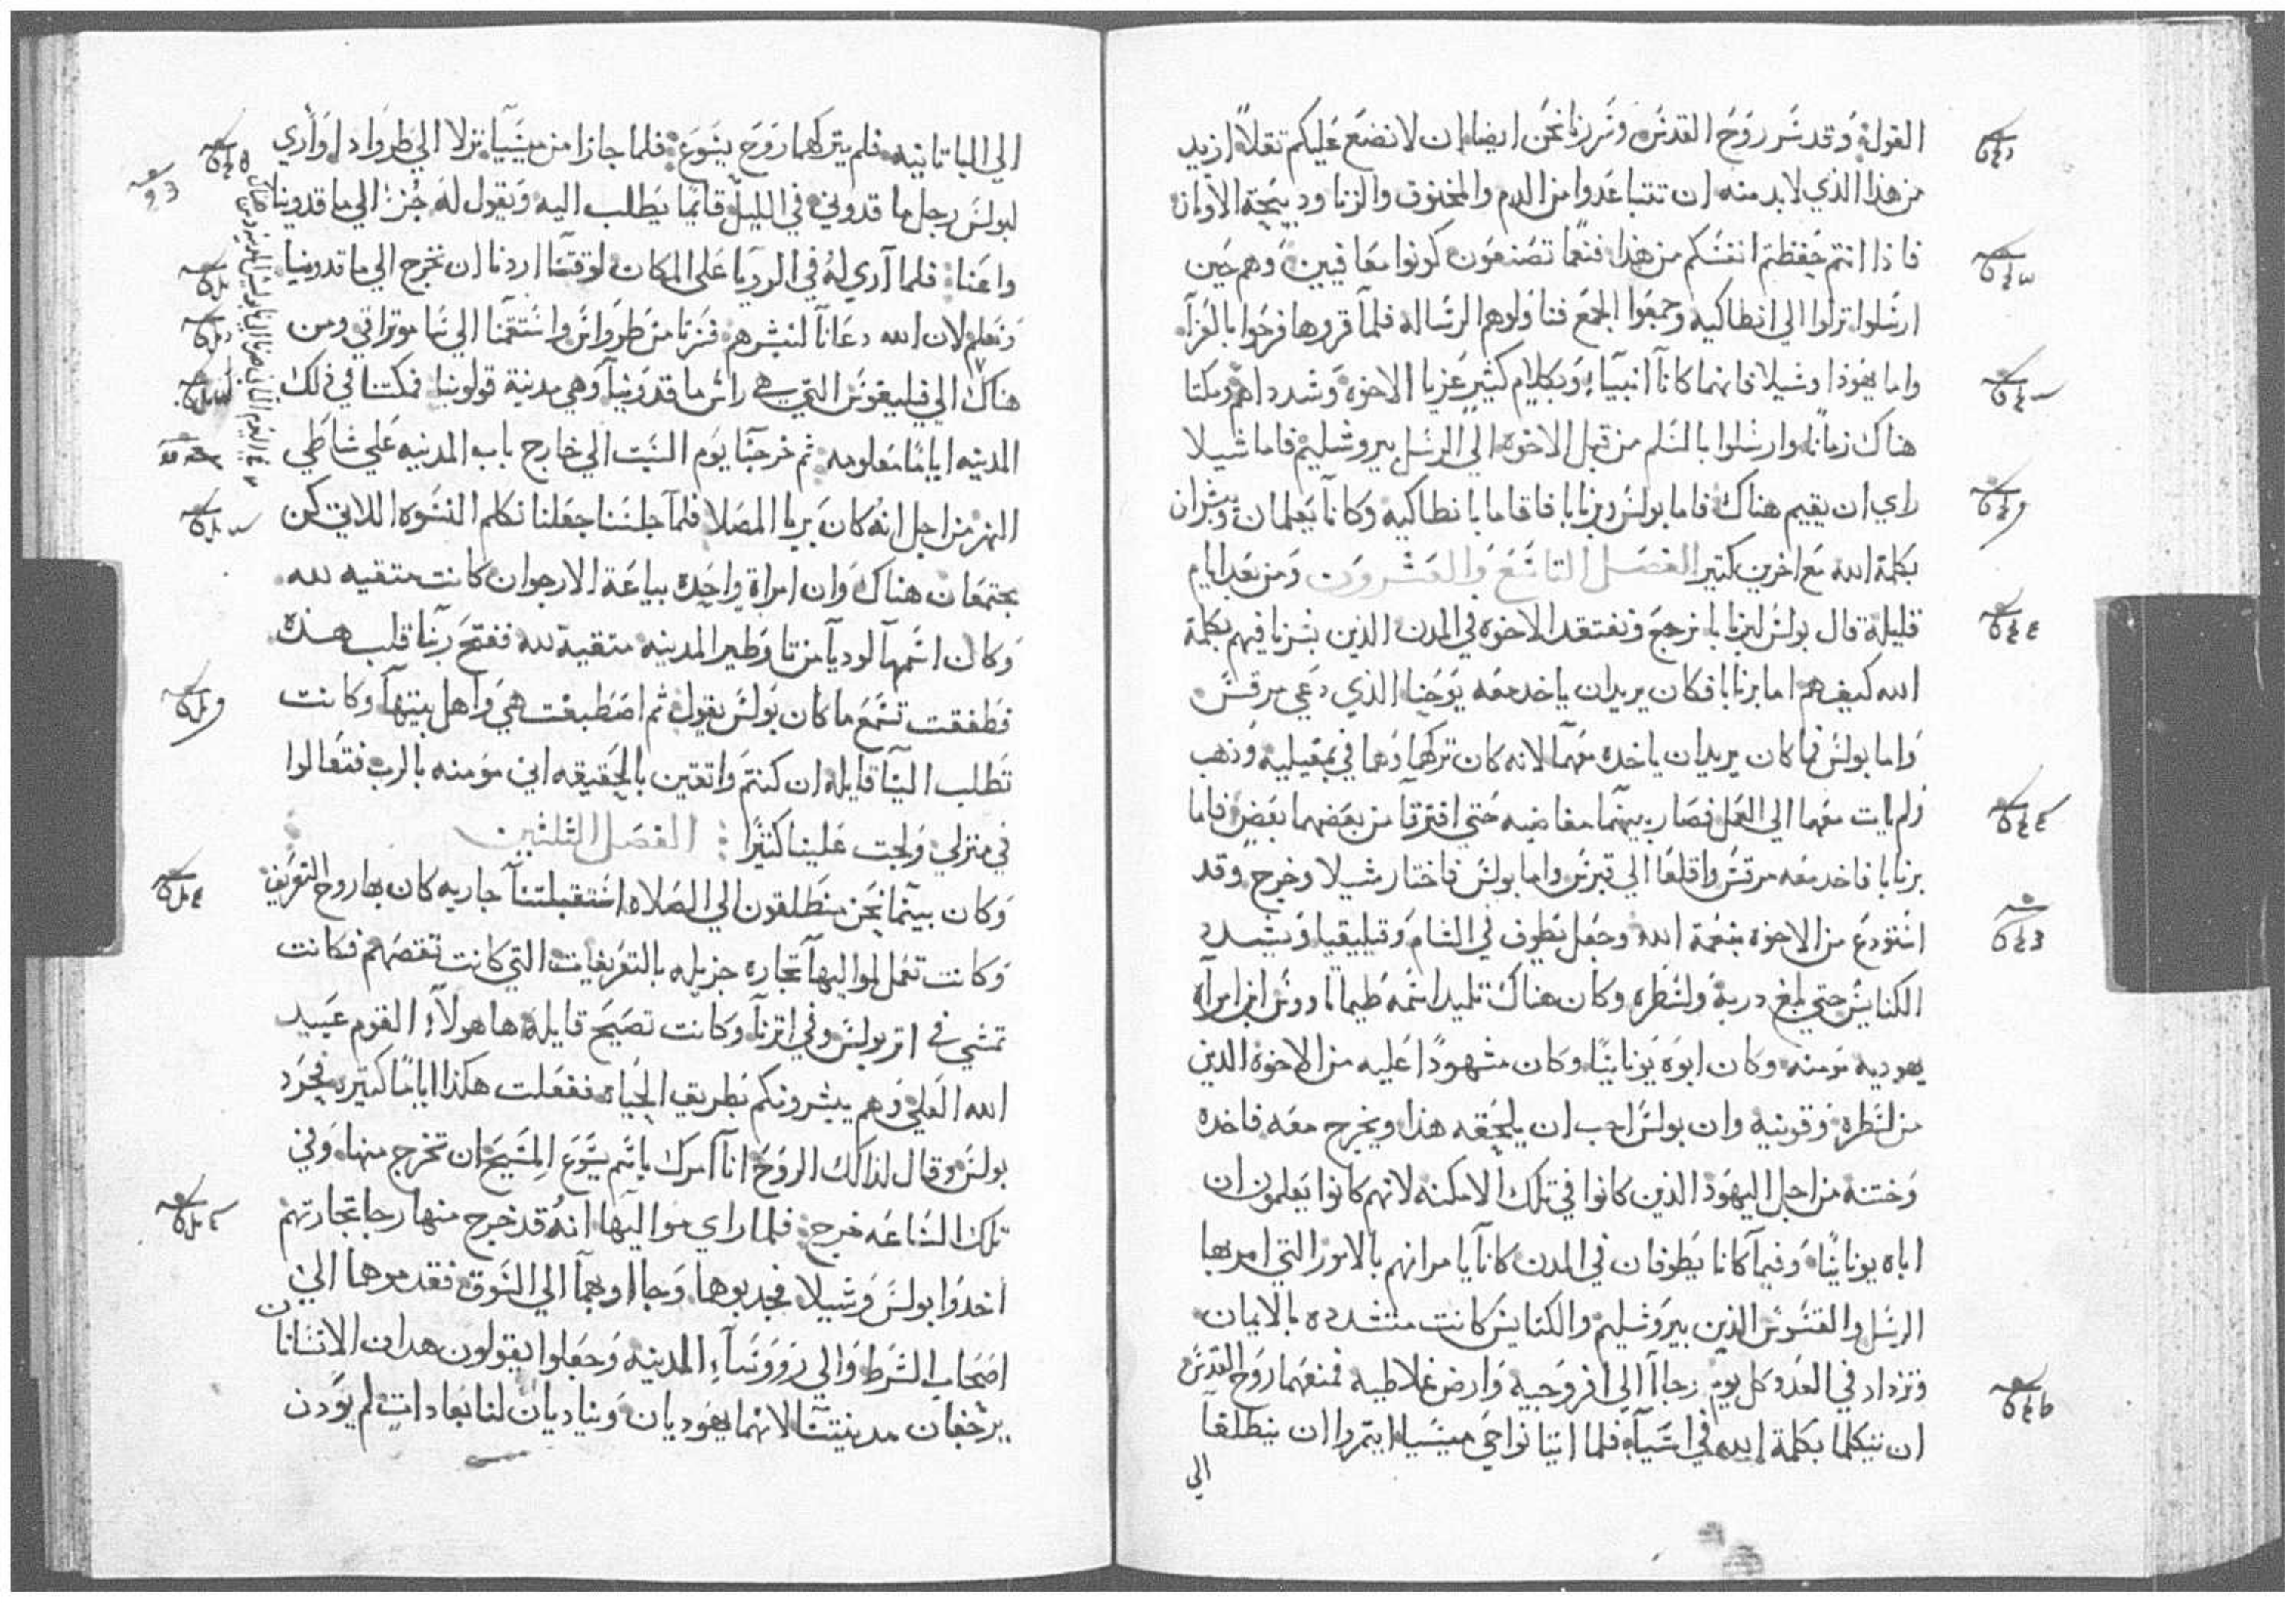 القول وقد شر روح القدس وسررنا نحن ايضا ان لا نضع عليكم ثقلاً ازيد
من هذا الذي لا بد منه ان تتباعدوا من الدم والمخنوق والزنا ودبيحة الاوثان
فاذا انتم حفظتم انفسكم من هذا فنعما تصنعون كونوا معافيين وهم حين
ارسلوا نزلوا الي انطاكيه وجمعوا الجمع فناولوهم الرساله فلما قروها فرحوا بالعزآ
واما يهوذا وشيلا فانهما كانآ انبيآء وبكلام كثير عزيا الاخوه وشدداهم ومكثا
هناك زمانا وارسلوا بالسلم من قبل الاخوه الي الرسل بيروشليم فاما شيلا
راي ان يقيم هناك فاما بولس وبرنابا فاقاما بانطاكيه وكانآ يعلمان ويبشران
بكلمة الله مع اخرين كتير الفصل التاسع والعشرون ومن بعد ايام
قليلة قال بولس لبرنابا نرجع ونفتقد الاخوه في المدن الذين بشرنا فيهم بكلمة
الله كيف هم اما برنابا فكان يريد ان ياخد معه يوحنا الذي دعي مرقس
واما بولس فما كان يريد ان ياخده معهمآ لانه كان تركهما وهما في بمفيليه وذهب
ولم يات معهما الي العمل فصار بينهما مغاضبه حتي افترقآ من بعضهما بعض فاما
برنابا فاخد معه مرقس واقلعا الي قبرس واما بولس فاختار شيلا وخرج وقد
استودع من الاخوه بنعمة الله وجعل يطوف في الشام وقيليقيا ويشدد
الكنايس حتي بلغ دربة ولسطره وكان هناك تلميد اسمه طيماثاووس ابن امراه
يهوديه مومنه وكان ابوه يونانيا وكان مشهودًا عليه من الاخوة الذين
من لسطره وقونيه وان بولس احب ان يلحقه هذا ويخرج معه فاخده
وختنه من اجل اليهود الذين كانوا في تلك الامكنه لانهم كانوا يعلمون ان
اباه يونانيًا وفيمآ كانا يطوفان في المدن كانآ يامرانهم بالامور التي امر بها
الرسل والقسوس الذين بيروشليم والكنايس كانت متشدده بالايمان
وتزداد في العدد كل يوم رجاآ الي افروجيه وارض غلاطيه فمنعهما روح القدس
ان يتكلما بكلمة الله في اسيآ فلما اتيا نواحي ميسيا ايتمروا ان ينطلقا
الي
الي الباتانيه فلم يتركهما روح يسوع فلما جازا من ميسيآ نزلا الي طرواد اواري
لبولس رجل ماقدوني في الليل قائمًا يطلب اليه ويقول له جُز الي ماقدونيا
واعنا فلما آري له في الرويا علي المكان لوقتنا اردنا ان نخرج الي ماقدونيا
ونعلم لان الله دعانآ لنبشرهم فسرنا من طروادس واستقمنا الي ساموتراقي ومن
هناك الي فيليفوس التي هي راس ماقدونيآ وهي مدينة قولونيا فمكثنا في ذلك
المدينه ايامًا معلومه ثم خرجنا يوم السبت الي خارج باب المدينه علي شاطي
النهر من اجل انه كان يريا المصلا فلمآ جلسنا جعلنا نكلم النسوه اللاتي كن
يجتمعان هناك وان امراة واحده بياعة الارجوان كانت متقيه لله
وكان اسمهآ لوديآ من تاوطير المدينه متقية لله ففتح ربنا قلب هذه
فطفقت تسمع ما كان بولس يقول ثم اصطبغت هي واهل بيتهآ وكانت
تطلب الينآ قايله ان كنتم واتقين بالحقيقه اني مومنه بالرب فتعالوا
في منزلي ولجت علينا كثيرًا الفصل الثلثين
وكان بينما نحن منطلقون الي الصلاه استقبلتنآ جاريه كان بها روح التعريف
وكانت تعمل لمواليهآ تجاره جزيله بالتعريفات التي كانت تقصهم فكانت
تمشي في اتر بولس وفي اترنآ وكانت تصيح قايلة ها هولآء القوم عبيد
الله العلي وهم يبشرونكم بطريق الحياه ففعلت هكذا ايامًا كتيره فحرد
بولس وقال لذالك الروح انا آمرك باسم يسوع المسيح ان تخرج منها وفي
تلك الساعه خرج فلما راي مواليها انه قد خرج منها رجا تجارتهم
اخدوا بولس وشيلا فجدبوهما وجااو بهمآ الي السوق فقدموهما الي
اصحاب الشرط والي رووسآء المدينه وجعلوا يقولون هدان الانسانان
يرجفان مدينتنآ لانهما يهوديان ويناديان لنا بعادات لم يودن